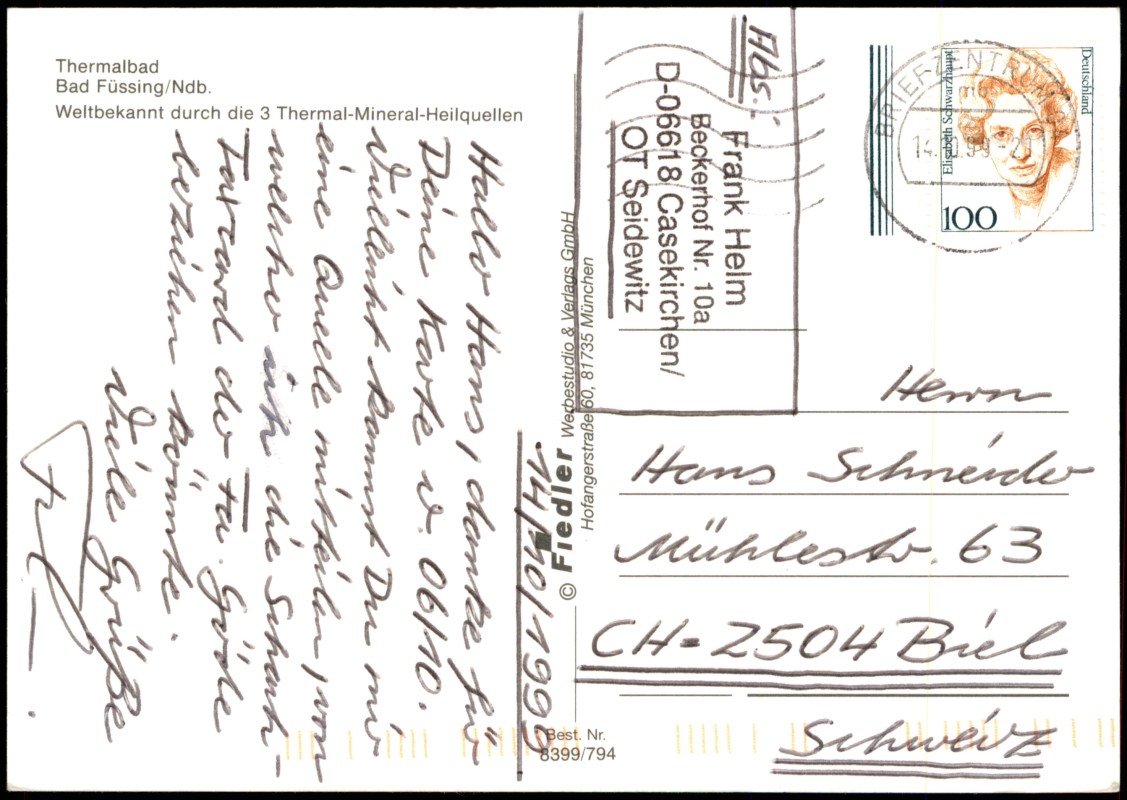 Thermalbad
Bad Füssing/Ndb.
Weltbekannt durch die 3 Thermal-Mineral-Heilquellen
14/10/1999
Hallo Hans, danke für
Deine Karte v. 06/10.
Vielleicht kannst Du mir
eine Quelle mitteilen, von
welcher ich die Schach-
Tatward der Fa. Göde
beziehen könnte.
Viele Grüße
Abs.:
Frank Helm
Beckerhof Nr. 10a
D-06618 Casekirchen/
OT Seidewitz
© Fiedler Werbestudio & Verlags GmbH
Hofangerstraße 60, 81735 München
Best. Nr.
8399/794
BRIEFZENTRUM
14.10.99-21
Deutschland
Elisabeth Schwarzhaupt
100
Herrn
Hans Schneider
Mühlestr. 63
CH-2504 Biel
Schweiz